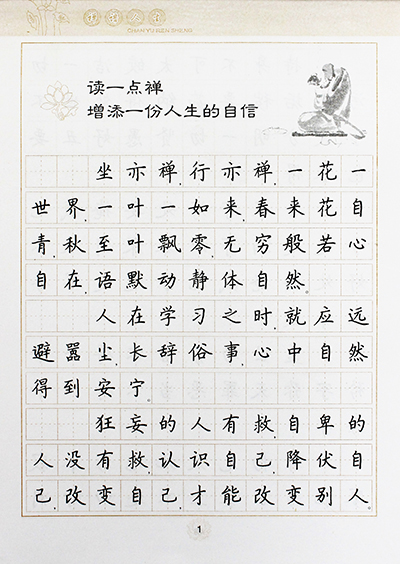 禅语人生
CHAN YU REN SHENG
读一点禅
增添一份人生的自信
坐亦禅,行亦禅,一花一
世界,一叶一如来,春来花自
青,秋至叶飘零,无穷般若心
自在,语默动静体自然。
人在学习之时,就应远
避嚣尘,长辞俗事,心中自然
得到安宁。
狂妄的人有救,自卑的
人没有救,认识自己,降伏自
己,改变自己,才能改变别人。
1